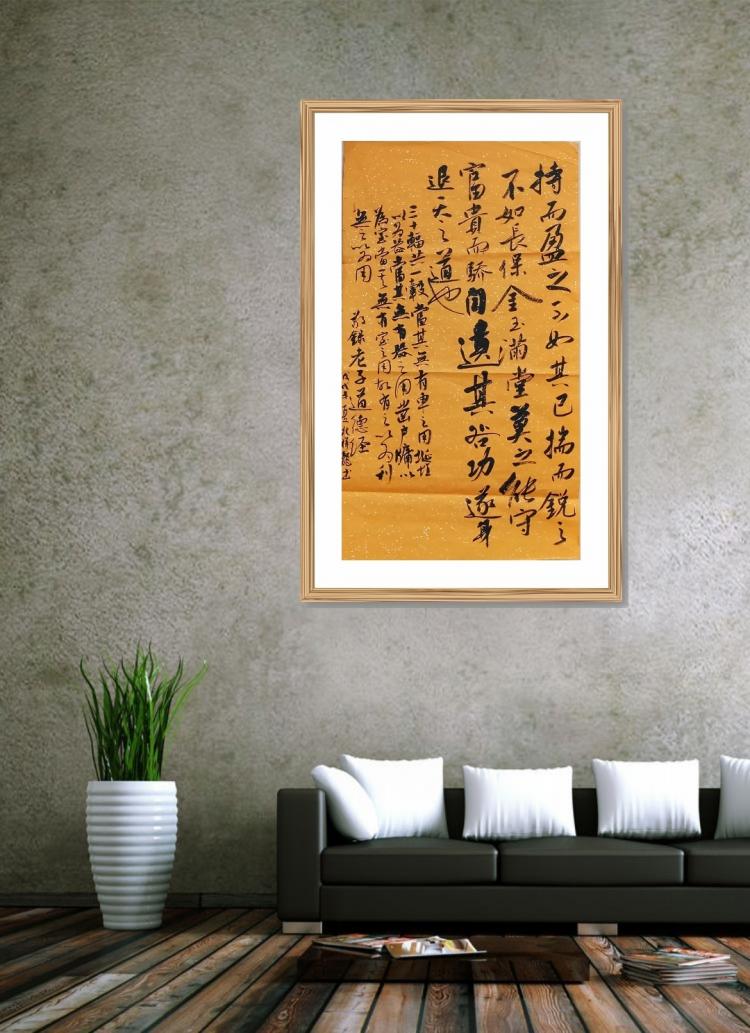 持而盈之不如其已揣而銳之
不如長保金玉滿堂莫之能守
富貴而驕自遺其咎功遂身
退天之道也
三十輻共一轂當其無有車之用埏埴
以为器當其無有器之用凿戶牖以
為室當其無有室之用故有之以为利
無之以为用
敬錄老子道德經